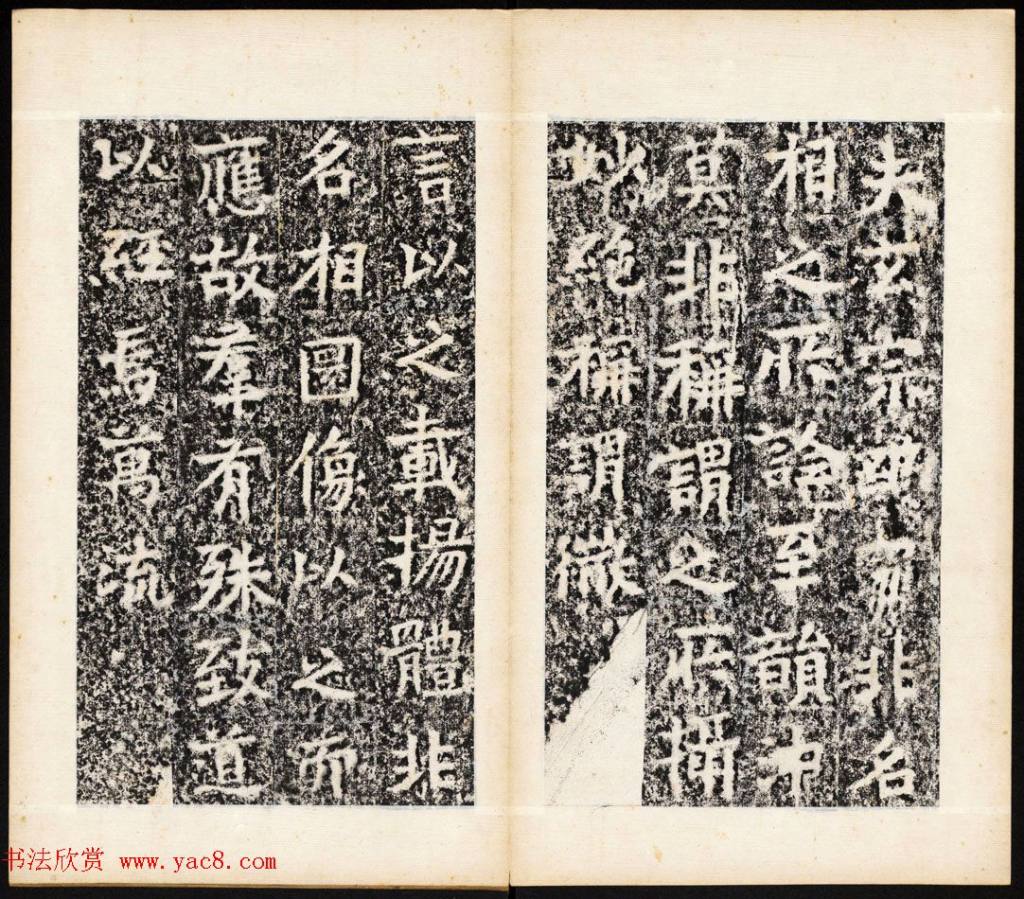 夫玄宗寂非名
相之所詮至韻沖
莫非稱謂之所攝
妙絕稱謂微
言以之載揚體非
名相圖像以之而
應故羣有殊致道
以經焉萬流
书法欣赏 www.yac8.com